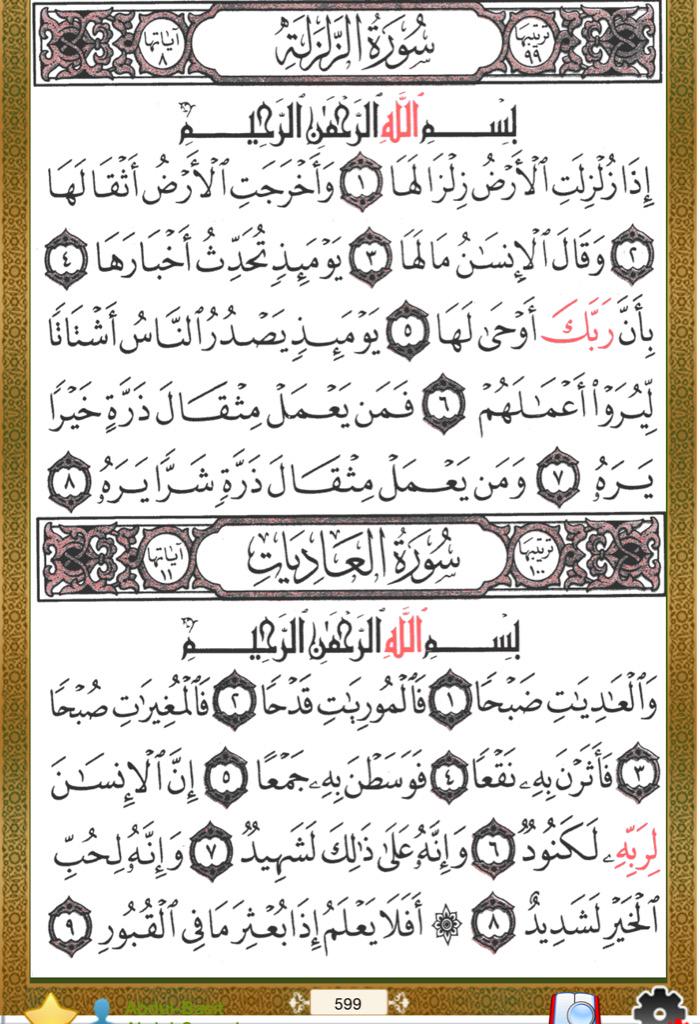 ترتيبها ٩٩ سُورَةُ الزَّلْزَلَةِ آياتها ٨
بِسْمِ اللَّهِ الرَّحْمَٰنِ الرَّحِيمِ
إِذَا زُلْزِلَتِ ٱلْأَرْضُ زِلْزَالَهَا ١ وَأَخْرَجَتِ ٱلْأَرْضُ أَثْقَالَهَا
٢ وَقَالَ ٱلْإِنسَٰنُ مَا لَهَا ٣ يَوْمَئِذٍ تُحَدِّثُ أَخْبَارَهَا ٤
بِأَنَّ رَبَّكَ أَوْحَىٰ لَهَا ٥ يَوْمَئِذٍ يَصْدُرُ ٱلنَّاسُ أَشْتَاتًا
لِّيُرَوْا۟ أَعْمَٰلَهُمْ ٦ فَمَن يَعْمَلْ مِثْقَالَ ذَرَّةٍ خَيْرًا
يَرَهُۥ ٧ وَمَن يَعْمَلْ مِثْقَالَ ذَرَّةٍ شَرًّا يَرَهُۥ ٨
ترتيبها ١٠٠ سُورَةُ العَادِيَاتِ آياتها ١١
بِسْمِ اللَّهِ الرَّحْمَٰنِ الرَّحِيمِ
وَٱلْعَٰدِيَٰتِ ضَبْحًا ١ فَٱلْمُورِيَٰتِ قَدْحًا ٢ فَٱلْمُغِيرَٰتِ صُبْحًا
٣ فَأَثَرْنَ بِهِۦ نَقْعًا ٤ فَوَسَطْنَ بِهِۦ جَمْعًا ٥ إِنَّ ٱلْإِنسَٰنَ
لِرَبِّهِۦ لَكَنُودٌ ٦ وَإِنَّهُۥ عَلَىٰ ذَٰلِكَ لَشَهِيدٌ ٧ وَإِنَّهُۥ لِحُبِّ
ٱلْخَيْرِ لَشَدِيدٌ ٨ ۞ أَفَلَا يَعْلَمُ إِذَا بُعْثِرَ مَا فِى ٱلْقُبُورِ ٩
599